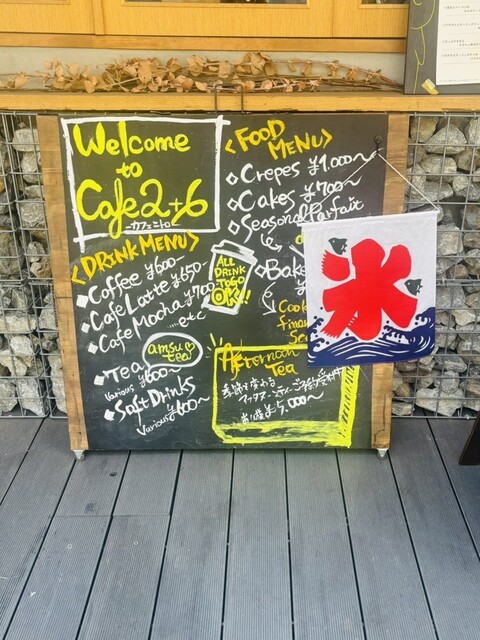 Welcome
to
Cafe 2+6
-カフェニトロ-
<DRINK MENU>
◆Coffee ¥600-
◆Cafe Latte ¥650-
◆Cafe Mocha ¥700
....etc
◆Tea
Various ¥600〜
◆Soft Drinks
Various ¥600〜
ALL
DRINK
TOGO
OK!!
amsu
tea
<FOOD
MENU>
◆Crepes ¥1,000〜
◆Cakes ¥700〜
◆Seasonal Parfait
◆Bake
Cook
finan
Afternoon
Tea
季節で変わる
お1人様¥5,000〜
氷